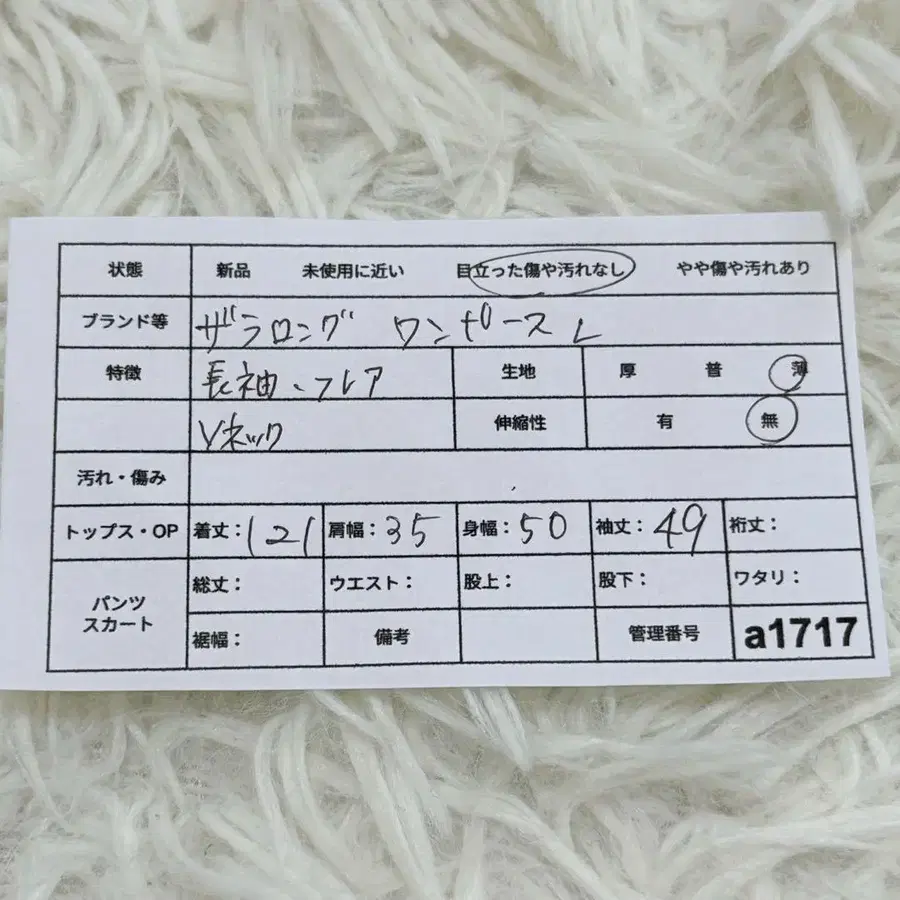 状態 新品 未使用に近い 目立った傷や汚れなし やや傷や汚れあり
ブランド等 ザラロング ワンピース L
特徴 長袖、フレア 生地 厚 普 薄
Vネック 伸縮性 有 無
汚れ・傷み
トップス・OP 着丈：121 肩幅：35 身幅：50 袖丈：49 裄丈：
パンツ スカート 総丈： ウエスト： 股上： 股下： ワタリ：
裾幅： 備考 管理番号 a1717